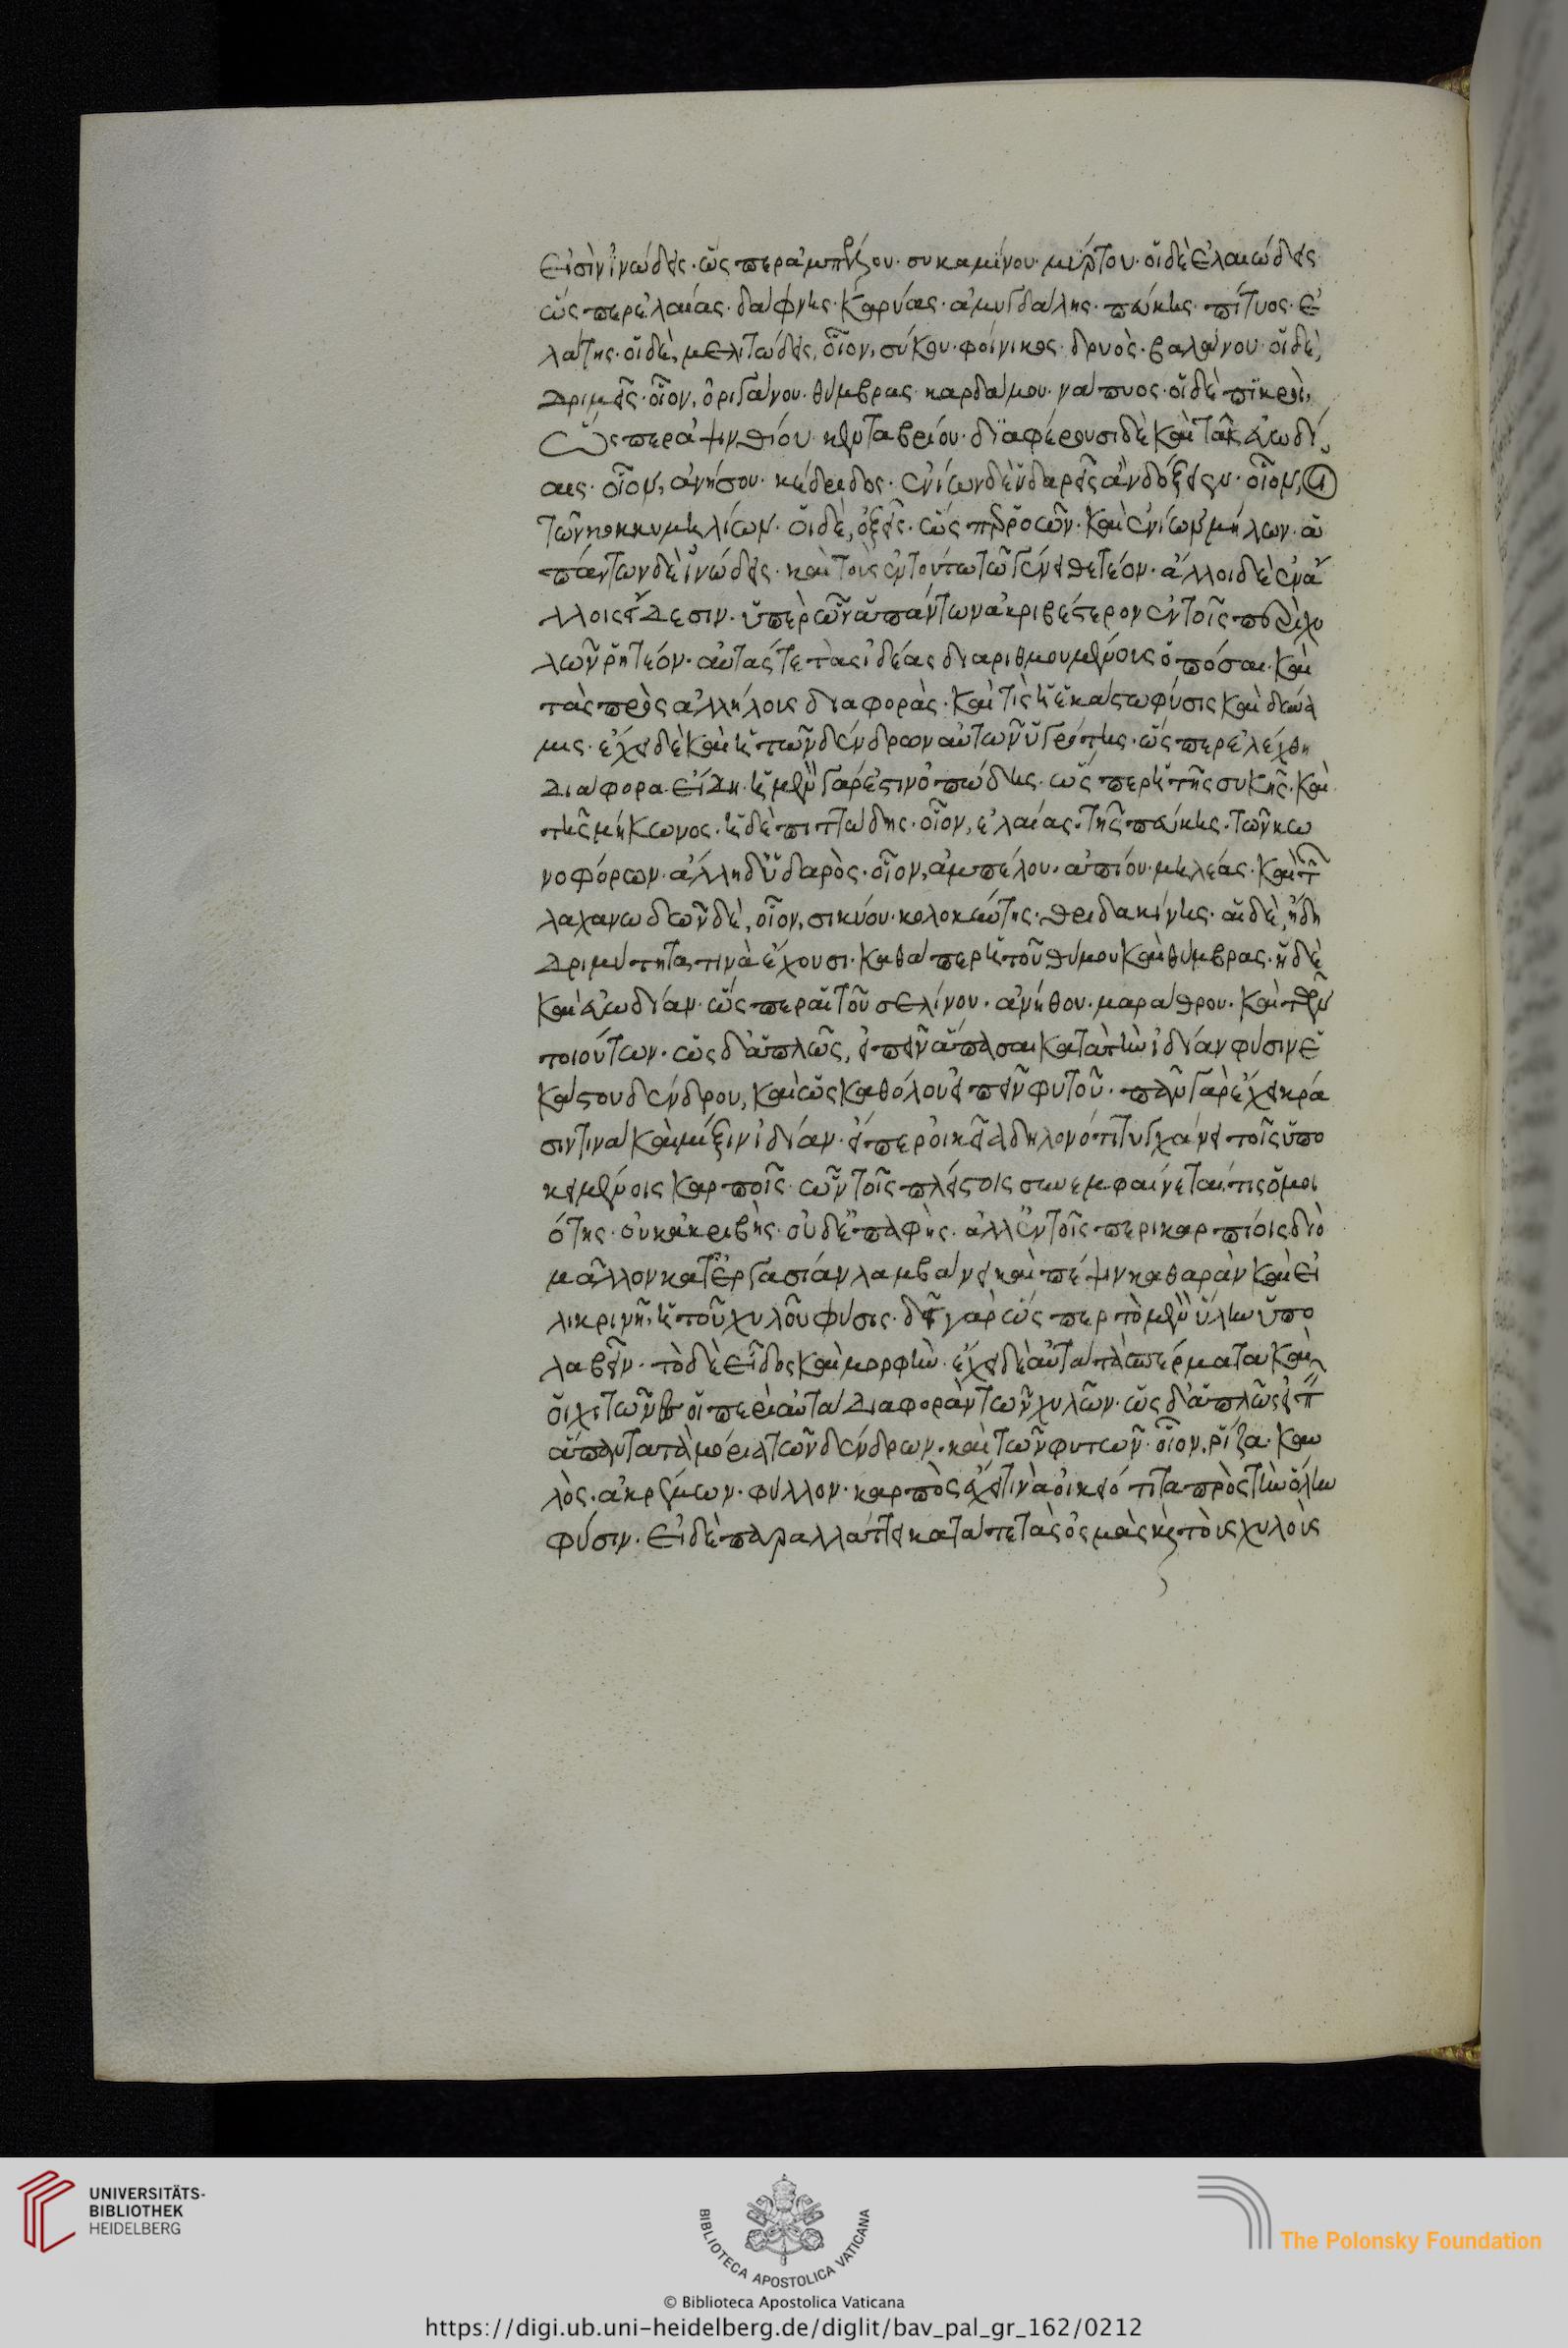 εἰσὶν ἰνώδεις· ὥσπερ ἀμπέλου· συκαμίνου· μύρτου· οἱ δὲ ἐλαιώδεις
ὥσπερ ἐλαίας· δάφνης· καρύας· ἀμυγδάλης· πεύκης· πίτυος· ἐ
λάτης· οἱ δὲ, μελιτώδεις, οἷον, σύκου· φοίνικος· δρυὸς· βαλάνου· οἱ δὲ,
δριμεῖς· οἷον, ὀριγάνου· θύμβρας· καρδάμου· νάπυος· οἱ δὲ πικροὶ,
ὥσπερ ἀψινθίου· κενταυρίου· διαφέρουσι δὲ καὶ ταῖς εὐωδί
αις· οἷον, ἀνήσου· κεδρίδος· ἐνίων δὲ ὑδαρεῖς ἂν δόξειεν· οἷον, οἱ
τῶν κοκκυμηλέων· οἱ δὲ, ὀξεῖς· ὥσπερ ῥοῶν· καὶ ἐνίων μήλων· ἁ
πάντων δὲ οἰνώδεις· καὶ τοὺς ἐν τούτῳ τῷ γένει θετέον· ἄλλοι δὲ ἐν ἄ
λλοις εἴδεσιν· ὑπὲρ ὧν ἁπάντων ἀκριβέστερον ἐν τοῖς περὶ χυ
λῶν ῥητέον· αὐτάς τε τὰς ἰδέας διαριθμουμένοις ὁπόσαι· καὶ
τὰς πρὸς ἀλλήλους διαφορὰς· καὶ τίς ἡ ἑκάστῳ φύσις καὶ δύνα
μις· ἔχει δὲ καὶ ἡ τῶν δένδρων αὐτῶν ὑγρότης· ὥσπερ ἐλέχθη
διάφορα εἴδη· ἡ μὲν γάρ ἐστιν ὀπώδης· ὥσπερ ἡ τῆς συκῆς· καὶ
τῆς μήκωνος· ἡ δὲ πιττώδης· οἷον, ἐλαίας· τῆς πεύκης· τῶν κω
νοφόρων· ἄλλη δ' ὑδαρὸς· οἷον, ἀμπέλου· ἀπίου· μηλέας· καὶ τῶν
λαχανωδῶν δὲ, οἷον, σικύου· κολοκύντης· θριδακίνης· αἱ δὲ, ἤδη
δριμύτητα τινὰ ἔχουσι· καθάπερ ἡ τοῦ θύμου καὶ θύμβρας· ἡ δὲ
καὶ εὐωδίαν· ὥσπερ αἱ τοῦ σελίνου· ἀνήθου· μαράθρου· καὶ τῶν
τοιούτων· ὡς δ' ἁπλῶς, εἰπεῖν ἅπασαι κατὰ τὴν ἰδίαν φύσιν ἑ
κάστου δένδρου, καὶ ὡς καθόλου εἰπεῖν φυτοῦ· πᾶν γὰρ ἔχει κρᾶ
σίν τινα καὶ μίξιν ἰδίαν· εἴπερ οἰκεῖα δηλονότι τυγχάνει τοῖς ὑπο
κειμένοις καρποῖς· ὧν τοῖς πλείστοις συνεμφαίνεταί τις ὁμοι
ότης· οὐκ ἀκριβὴς· οὐδὲ σαφὴς· ἀλλ' ἐν τοῖς περικαρπίοις διὸ
μᾶλλον κατεργασίαν λαμβάνει καὶ πέψιν καθαρὰν καὶ εἰ
λικρινῆ, ἡ τοῦ χυλοῦ φύσις· δεῖ γὰρ ὥσπερ τὸ μὲν ὕλην ὑπο
λαβεῖν· τὸ δὲ εἶδος καὶ μορφὴν· ἔχει δὲ αὐτὰ τὰ σπέρματα καὶ
οἱ χιτῶνες οἱ περὶ αὐτὰ διαφορὰν τῶν χυλῶν· ὡς δ' ἁπλῶς εἰπεῖν
ἅπαντα τὰ μόρια τῶν δένδρων· καὶ τῶν φυτῶν· οἷον, ῥίζα· καυ
λὸς· ἀκρεμών· φύλλον· καρπὸς ἔχει τινὰ οἰκειότητα πρὸς τὴν ὅλην
φύσιν· εἰ δὲ παραλλάττει κατά τε τὰς ὀσμὰς καὶ τοὺς χυλοὺς
UNIVERSITÄTS-
BIBLIOTHEK
HEIDELBERG
BIBLIOTECA APOSTOLICA VATICANA
The Polonsky Foundation
© Biblioteca Apostolica Vaticana
https://digi.ub.uni-heidelberg.de/diglit/bav_pal_gr_162/0212